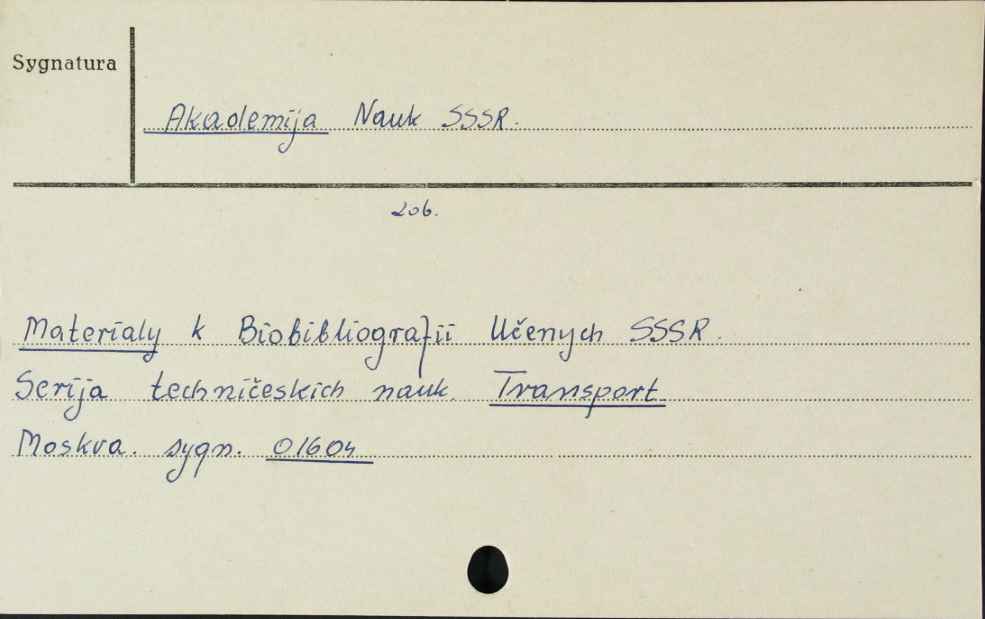 Sygnatura
Akademija Nauk SSSR.
zob.
Materialy k Biobibliografii Učenych SSSR.
Serija techničeskich nauk. Transport.
Moskva. sygn. 01604